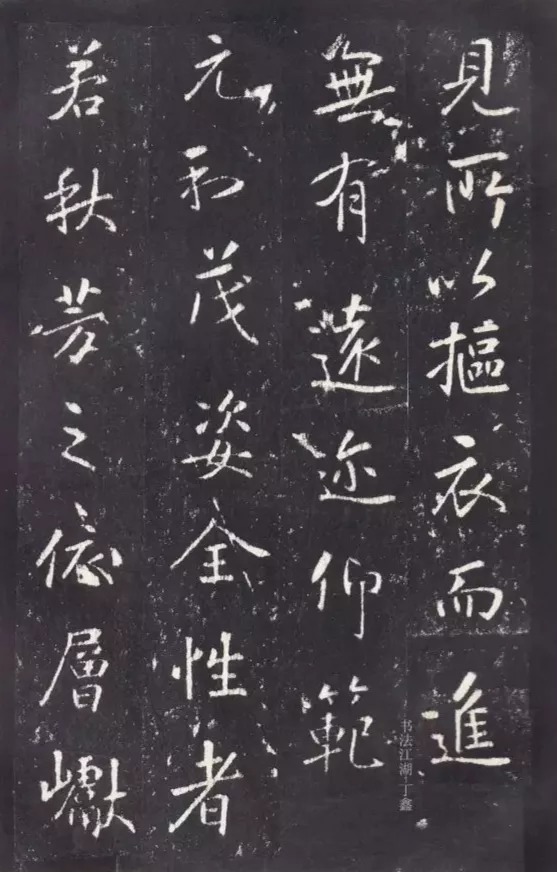 見所以摳衣而進
無有遠迩仰範
元和茂姿全性者
若秋芳之依層巘
书法江湖·丁鑫